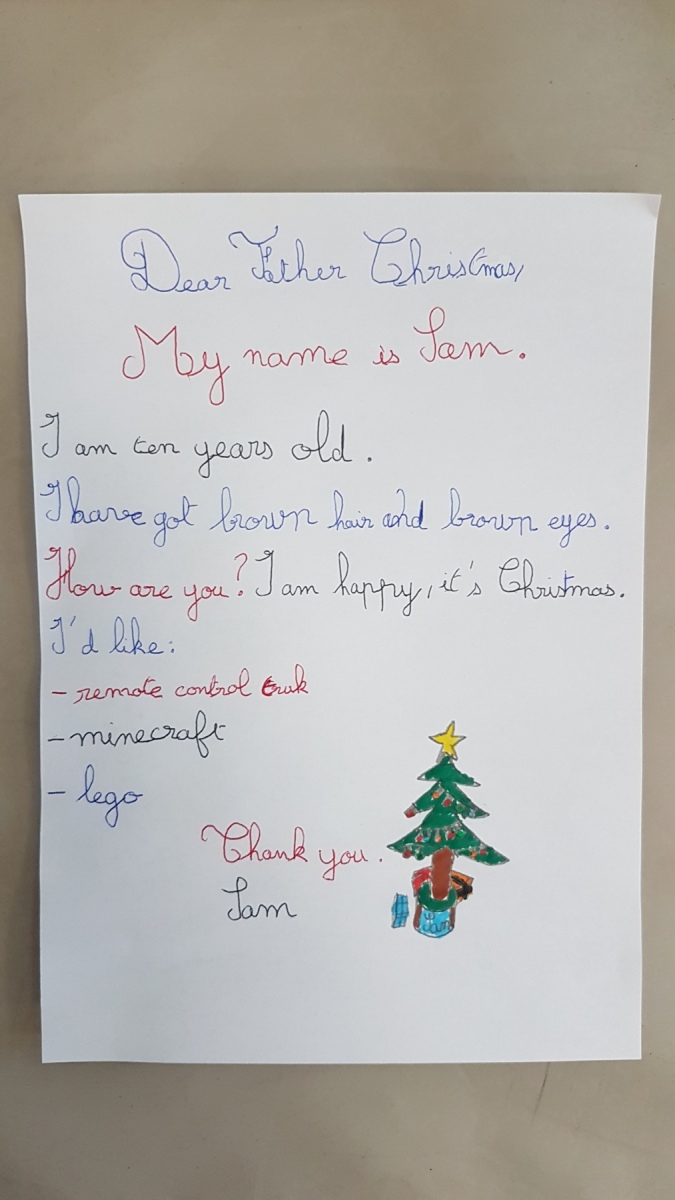 Dear Father Christmas,
My name is Sam.
I am ten years old.
I have got brown hair and brown eyes.
How are you? I am happy, it's Christmas.
I'd like:
- remote control truk
- minecraft
- lego
Thank you.
Sam
Sam